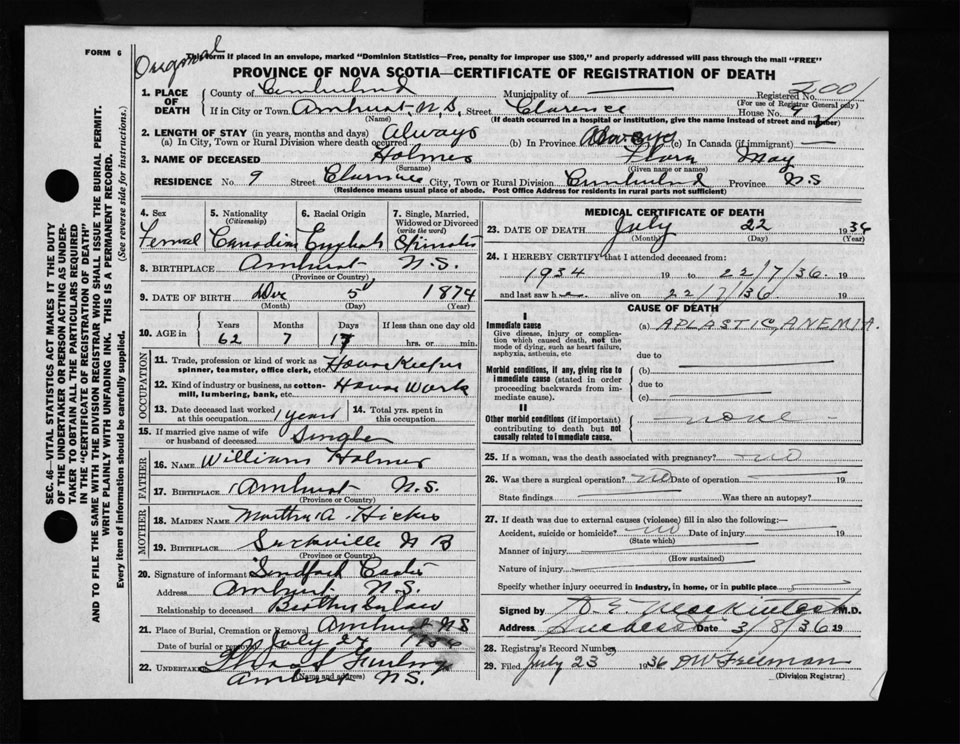 FORM 6
Original
This form if placed in an envelope, marked "Dominion Statistics—Free, penalty for improper use $300," and properly addressed will pass through the mail "FREE"
PROVINCE OF NOVA SCOTIA—CERTIFICATE OF REGISTRATION OF DEATH
1. PLACE OF DEATH County of Cumberland Municipality of Registered No. 2001
(For use of Registrar General only)
If in City or Town Amherst N.S. Street Clarence House No. 9
(Name) (If death occurred in a hospital or institution, give the name instead of street and number)
2. LENGTH OF STAY (in years, months and days) Always
(a) In City, Town or Rural Division where death occurred (b) In Province Always (c) In Canada (if immigrant)
3. NAME OF DECEASED Holmes Flora May
(Surname) (Given name or names)
RESIDENCE No. 9 Street Clarence City, Town or Rural Division Cumberland Province N.S
(Residence means usual place of abode. Post Office Address for residents in rural parts not sufficient)
4. Sex Femal
5. Nationality (Citizenship) Canadian
6. Racial Origin English
7. Single, Married, Widowed or Divorced (write the word) Spinster
8. BIRTHPLACE Amherst N.S.
(Province or Country)
9. DATE OF BIRTH 5 1874
(Month) (Day) (Year)
10. AGE in Years Months Days If less than one day old
62 7 17 hrs. or min.
OCCUPATION
11. Trade, profession or kind of work as spinner, teamster, office clerk, etc. House Keeper
12. Kind of industry or business, as cotton-mill, lumbering, bank, etc. House Work
13. Date deceased last worked at this occupation 1 year
14. Total yrs. spent in this occupation
15. If married give name of wife or husband of deceased Single
FATHER
16. NAME William Holmes
17. BIRTHPLACE Amherst N.S.
(Province or Country)
MOTHER
18. MAIDEN NAME Martha A Hicks
19. BIRTHPLACE Sackville N B
(Province or Country)
20. Signature of informant
Address Amherst N.S.
Relationship to deceased Brother in law
21. Place of Burial, Cremation or Removal Amherst N S
Date of burial or removal July 24
22. UNDERTAKER
(Name and address)
Amherst N.S.
MEDICAL CERTIFICATE OF DEATH
23. DATE OF DEATH July 22 1936
(Month) (Day) (Year)
24. I HEREBY CERTIFY that I attended deceased from:
1934 19 to 22/7/36. 19
and last saw her alive on 22/7/36. 19
CAUSE OF DEATH
I
Immediate cause (a) APLASTIC ANEMIA.
Give disease, injury or complication which caused death, not the mode of dying, such as heart failure, asphyxia, asthenia, etc
due to
Morbid conditions, if any, giving rise to immediate cause (stated in order proceeding backwards from immediate cause).
(b)
due to
(c)
II
Other morbid conditions (if important) contributing to death but not causally related to immediate cause. none
25. If a woman, was the death associated with pregnancy? no
26. Was there a surgical operation? no Date of operation 19
State findings Was there an autopsy?
27. If death was due to external causes (violence) fill in also the following:—
Accident, suicide or homicide? no Date of injury 19
(State which)
Manner of injury
(How sustained)
Nature of injury
Specify whether injury occurred in industry, in home, or in public place
Signed by M.D.
Address Amherst Date 3/8/36 19
28. Registrar's Record Number
29. Filed July 23 1936 Freeman
(Division Registrar)
SEC. 46—VITAL STATISTICS ACT MAKES IT THE DUTY
OF THE UNDERTAKER OR PERSON ACTING AS UNDER-
TAKER TO OBTAIN ALL THE PARTICULARS REQUIRED
IN THE "CERTIFICATE OF REGISTRATION OF DEATH"
AND TO FILE THE SAME WITH THE DIVISION REGISTRAR WHO SHALL ISSUE THE BURIAL PERMIT.
WRITE PLAINLY WITH UNFADING INK. THIS IS A PERMANENT RECORD.
Every item of information should be carefully supplied. (See reverse side for instructions.)